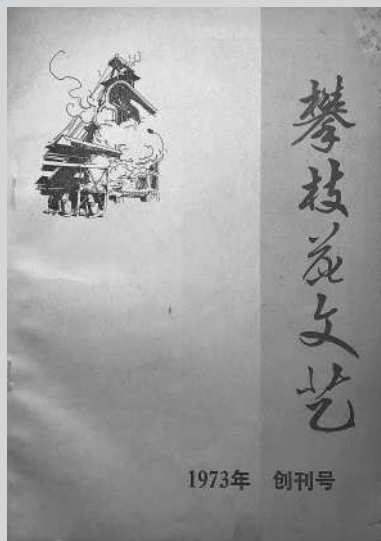 攀枝花文艺
1973年 创刊号